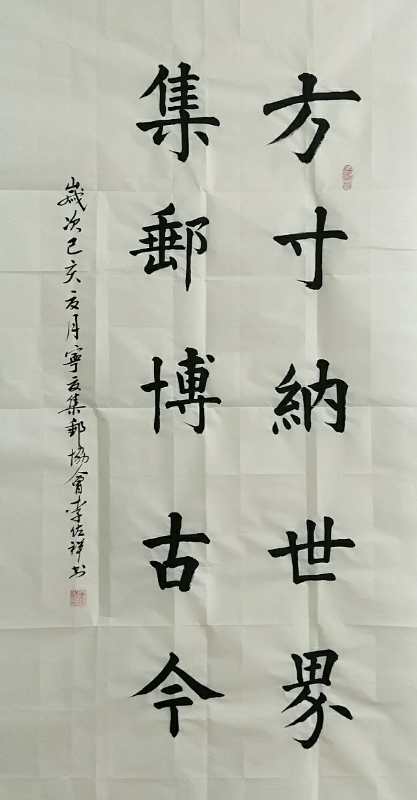 方寸納世界
集郵博古今
歲次己亥夏月寧夏集郵協會李佐祥书